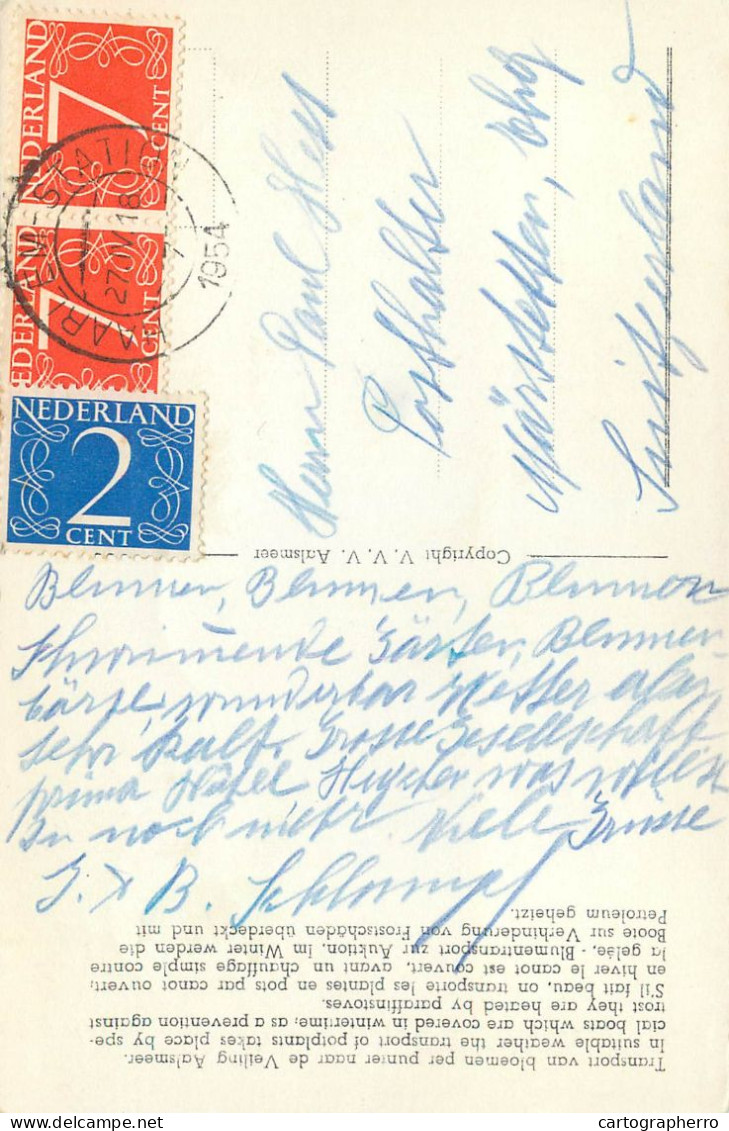 NEDERLAND
7
CENT
NEDERLAND
7
CENT
NEDERLAND
2
CENT
HAARLEM-STATION
27 IV 18
1954
Herrn Paul Hess
Posthalter
Märstetten, Thg
Switzerland
Copyright V. V. V. Aalsmeer
Blumen, Blumen, Blumen
Schwimmende Gärten, Blumen-
börse, wunderbar Wetter aber
sehr kalt. Grosse Gesellschaft
prima Hotel Huyster was willst
Du noch mehr Viele Grüsse
J. & B. Schlumpf
Transport van bloemen per punter naar de Veiling Aalsmeer.
In suitable weather the transport of potplants takes place by spe-
cial boats which are covered in wintertime; as a prevention against
trost they are heated by paraffinstoves.
S'il fait beau, on transporte les plantes en pots par canot ouvert;
en hiver le canot est couvert, avant un chauffage simple contre
la gelée. - Blumentransport zur Auktion. Im Winter werden die
Boote sur Verhinderung von Frostschäden überdeckt und mit
Petroleum geheizt.
cartographerro